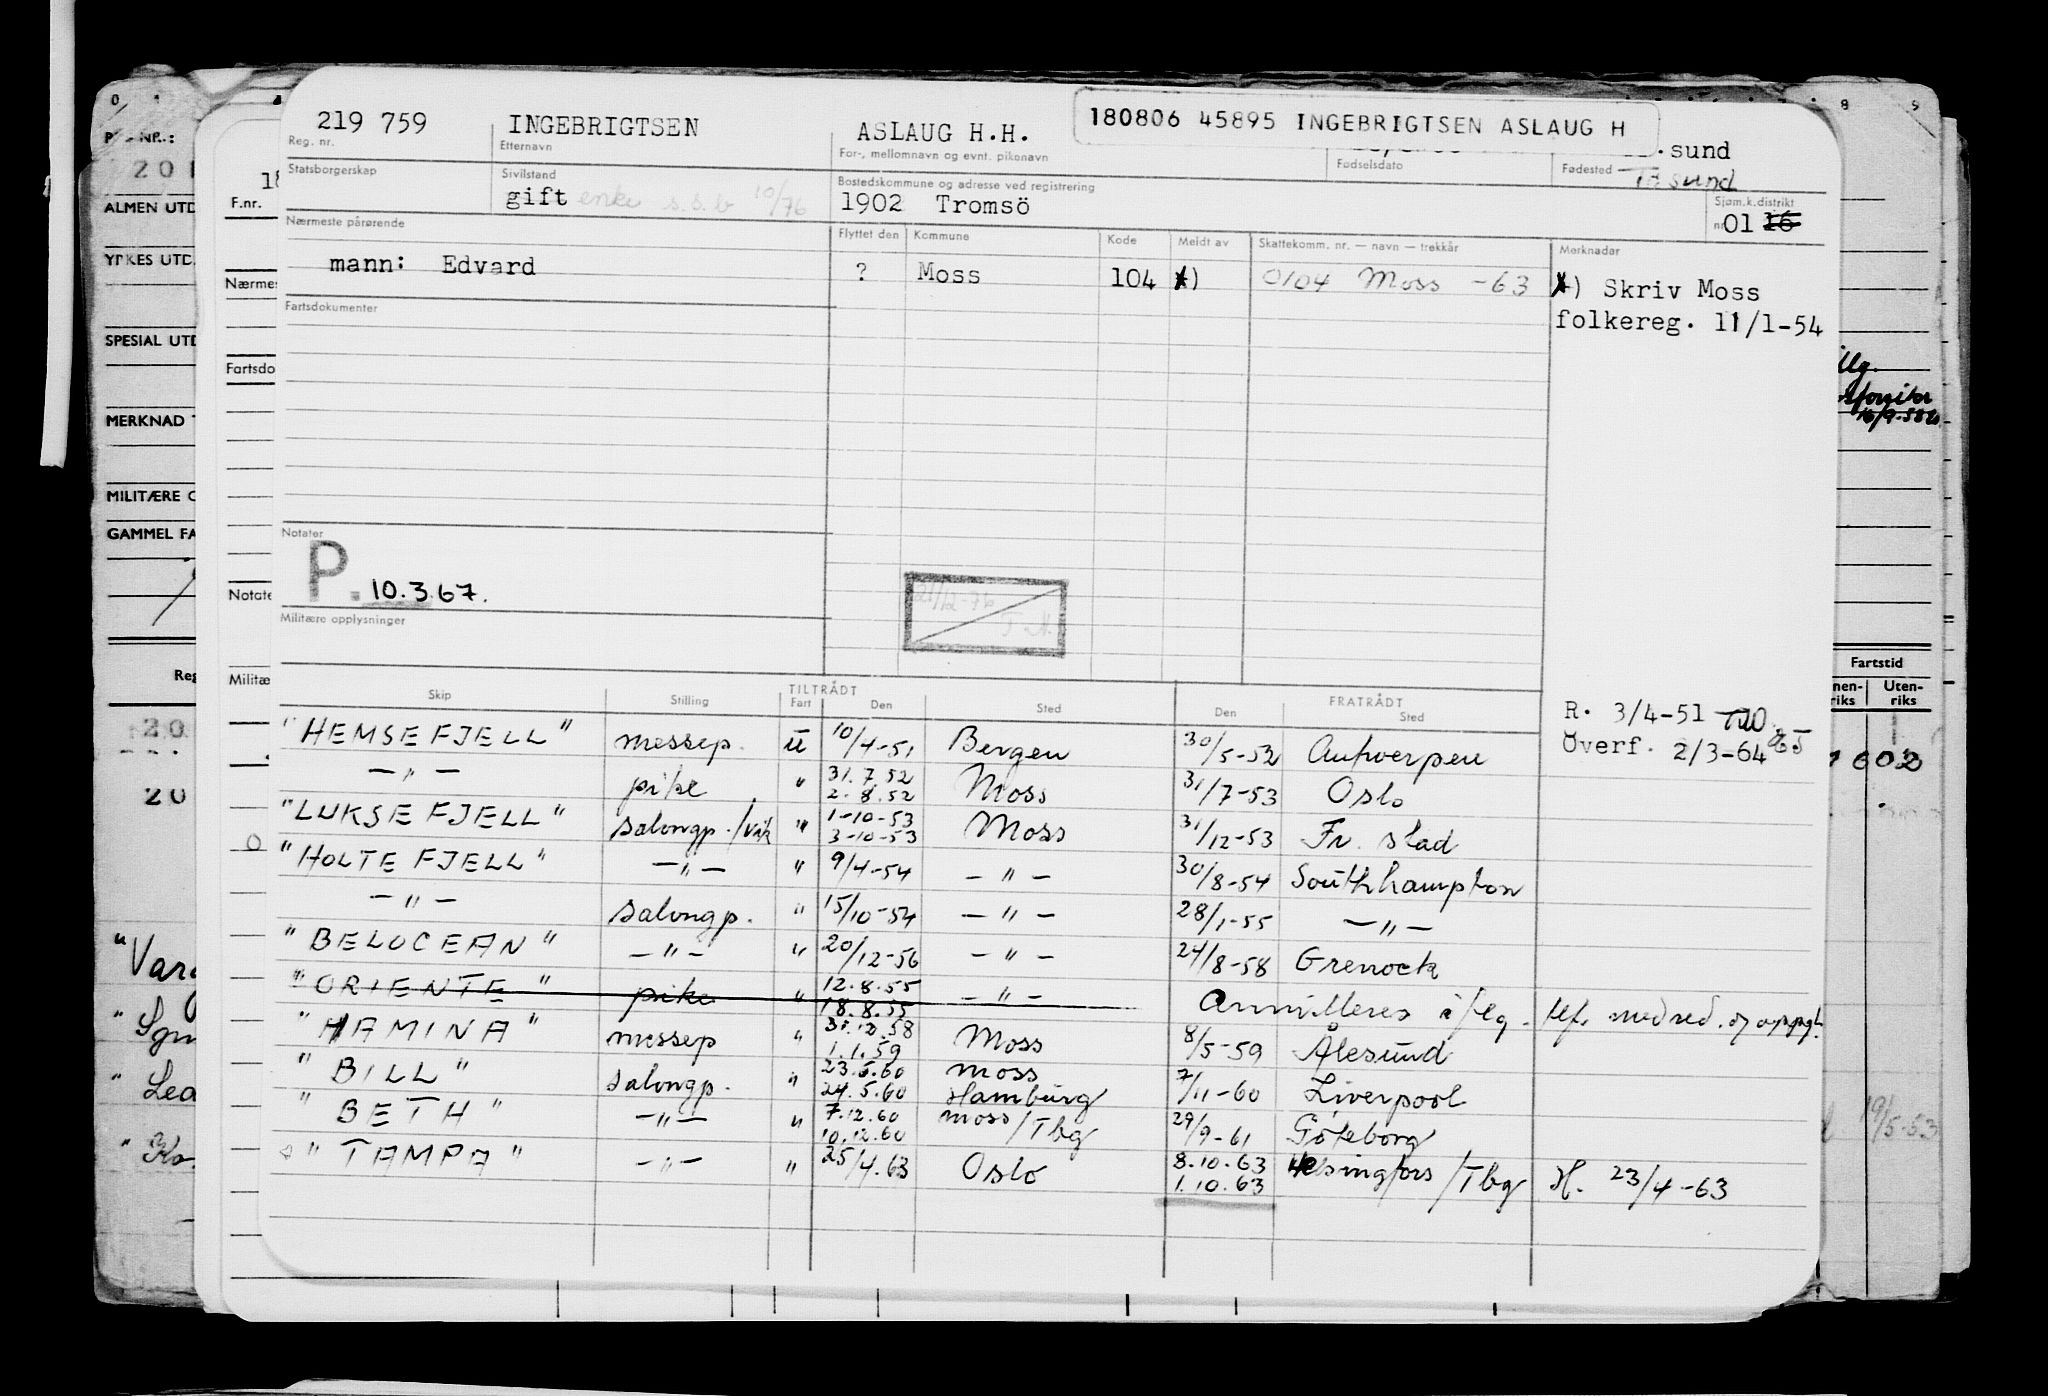 219 759 INGEBRIGTSEN ASLAUG H.H. 180806 45895 INGEBRIGTSEN ASLAUG H
Reg. nr. Etternavn For-, mellomnavn og evnt. pikenavn Fødselsdato Fødested .sund
Tr.sund
Statsborgerskap Sivilstand Bostedskommune og adresse ved registrering Sjøm.k.distrikt
gift enke s.s.b 10/76 1902 Tromsö nr 01 16
Nærmeste pårørende Flyttet den Kommune Kode Meldt av Skattekomm. nr. — navn — trekkår Merknader
mann: Edvard ? Moss 104 x) 0104 Moss -63 x) Skriv Moss
folkereg. 11/1-54
Fartsdokumenter
Notater
P. 10.3.67.
21/12-76
Militære opplysninger
Skip Stilling TILTRÅDT Fart Den Sted FRATRÅDT Den Sted
R. 3/4-51
Överf. 2/3-64
"HEMSEFJELL" messep. u 10/4-51 Bergen 30/5-52 Antwerpen
— " — pike " 31.7.52 2.8.52 Moss 31/7-53 Oslo
"LUKSEFJELL" salongp./vik " 1-10-53 3-10-53 Moss 31/12-53 Fr. stad
"HOLTEFJELL" — " — " 9/4-54 — " — 30/8-54 Southhampton
— " — salongp. " 15/10-54 — " — 28/1-55 — " —
"BELOCEAN" — " — " 20/12-56 — " — 24/8-58 Grenock
"ORIENTE" pike " 12.8.55 18.8.55 — " — Annulleres i flg. tlf. med red. og oppg.
"HAMINA" messep " 31.12.58 1.1.59 Moss 8/5-59 Ålesund
"BILL" salongp. " 23.5.60 24.5.60 Moss Hamburg 7/11-60 Liverpool
"BETH" — " — " 7.12.60 10.12.60 Moss/Tbg 29/9-61 Göteborg
"TAMPA" — " — " 25/4.63 Oslo 8.10.63 1.10.63 Helsingfors/Tbg H. 23/4-63
F.nr.
Fartsdo
Notate
Militæ
ALMEN UTD
YRKES UTD.
SPESIAL UTD
MERKNAD
MILITÆRE O
GAMMEL FA
Reg
20
Fartstid
Uten-
riks
19/5-53